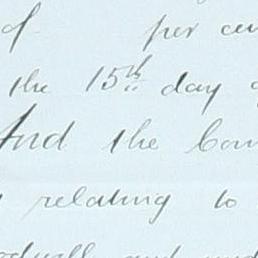 of per
the 15th day
And the
relating to